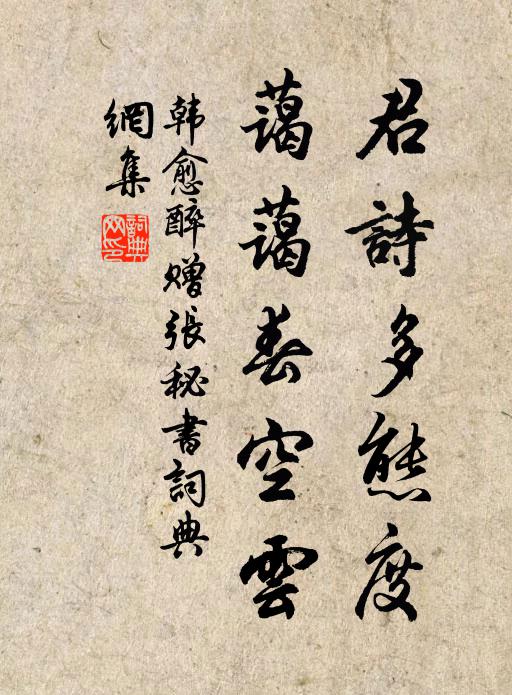 君詩多態度
藹藹春空雲
韩愈醉赠張秘書詞典
網集
詞典
网印